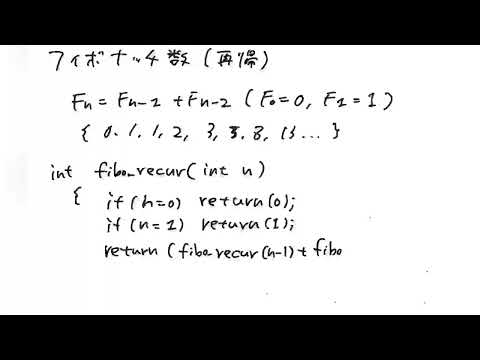 フィボナッチ数 (再帰)
Fn = Fn-1 + Fn-2 ( F0=0, F1=1 )
{ 0. 1. 1. 2, 3, 5. 8, 13 ... }
int fibo_recur( int n)
{ if (n=0) return(0);
if (n=1) return(1);
return (fibo_recur(n-1)+ fibo